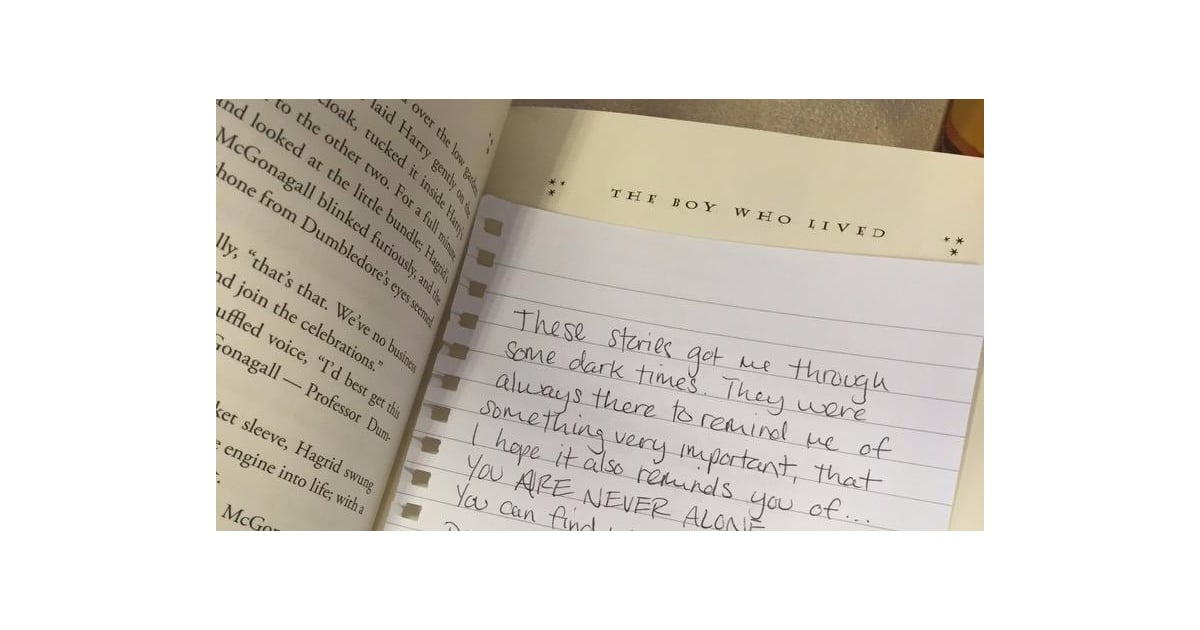 over the low garden
laid Harry gently on the
cloak, tucked it inside Harry's
to the other two. For a full minute
and looked at the little bundle; Hagrid's
McGonagall blinked furiously, and the
hone from Dumbledore's eyes seemed
lly, "that's that. We've no business
nd join the celebrations."
uffled voice, "I'd best get this
Gonagall — Professor Dum-
ket sleeve, Hagrid swung
engine into life; with a
McGon
THE BOY WHO LIVED
These stories got me through
some dark times. They were
always there to remind me of
something very important, that
I hope it also reminds you of...
YOU ARE NEVER ALONE
You can find